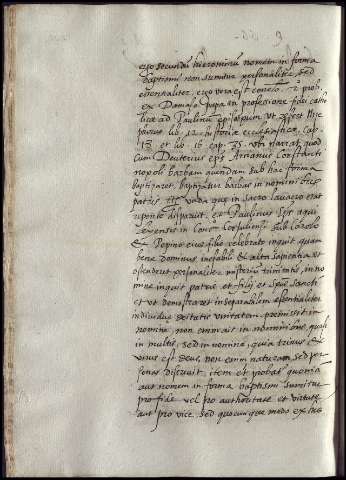 ergo secundum hieronimum nomen in forma
baptismi non sumitur personaliter sed
essentialiter, ergo vera est conclo. 2º prob.
ex Damaso papa in professione fidei catho
lica ad Paulinum episcopum ut refert Nice
phorus lib. 12 historiae ecclesiasticae cap.
18 et lib 16 cap. 35 ubi narrat quod
cum Deuterius eps Arrianus Constanti
nopoli barbam quendam sub hac forma
baptizaret, baptizatur barbas in nomine
patris unda quae in sacro lavacro erat
repente disparuit, et Paulinus Eps aqui
leyensis in conc. Forjuliensi sub Carolo
& Pepino eius filio celebrato inquit quam
bene dominus inefabili & alta sapientia ut
ostenderet personaliter misterium trinitatis, in no
mine inquit patris et filij et Spus Sancti
et ut demostraret inseparabilem essentialiter
individuae deitatis unitatem praemisit in
nomine, non enim ait in nominibus quasi
in multis, sed in nomine, quia trinus et
unus est deus non enim naturam sed per
sonas discrevit, item et probat quoniam
aut nomen in forma baptismi sumitur
pro fide vel pro authoritate et virtute
aut pro vice, sed quocunque modo ex his